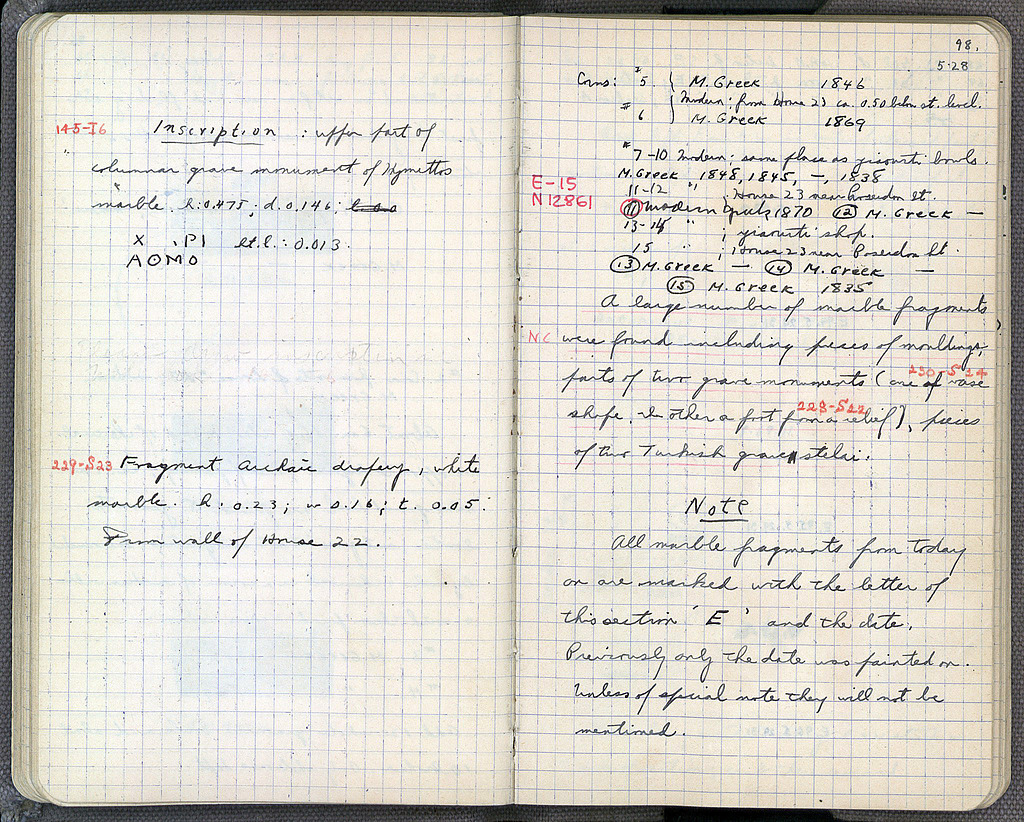 145-I6 Inscription : upper part of
columnar grave monument of Hymettos
marble. h: 0.475; d. 0.146;
X .PI let. h. : 0.013.
AOMO
229-S23 Fragment archaic drapery, white
marble. h: 0.23; w 0.16; t. 0.05.
From wall of House 22.
98.
5-28
Coins: # 5 { M. Greek 1846
Modern; from House 23 ca. 0.50 below st. level.
# 6 } M. Greek 1869
# 7-10 Modern; same place as yiaourti bowls.
M. Greek 1848, 1845, —, 1838
E-15
N12861
11-12 " ; House 23 near Poseidon St.
(11) Modern Greek 1870 (12) M. Greek —
13-14 " ; yiaourti shop.
15 " ; House 23 near Poseidon St.
(13) M. Greek — (14) M. Greek —
(15) M. Greek 1835
A large number of marble fragments
NC were found including pieces of mouldings,
230-S24
parts of two grave monuments (one of vase
228-S22
shape, the other a foot from a relief), pieces
of two Turkish grave stelai.
Note
All marble fragments from today
on are marked with the letter of
this section 'E' and the date.
Previously only the date was painted on.
Unless of special note they will not be
mentioned.